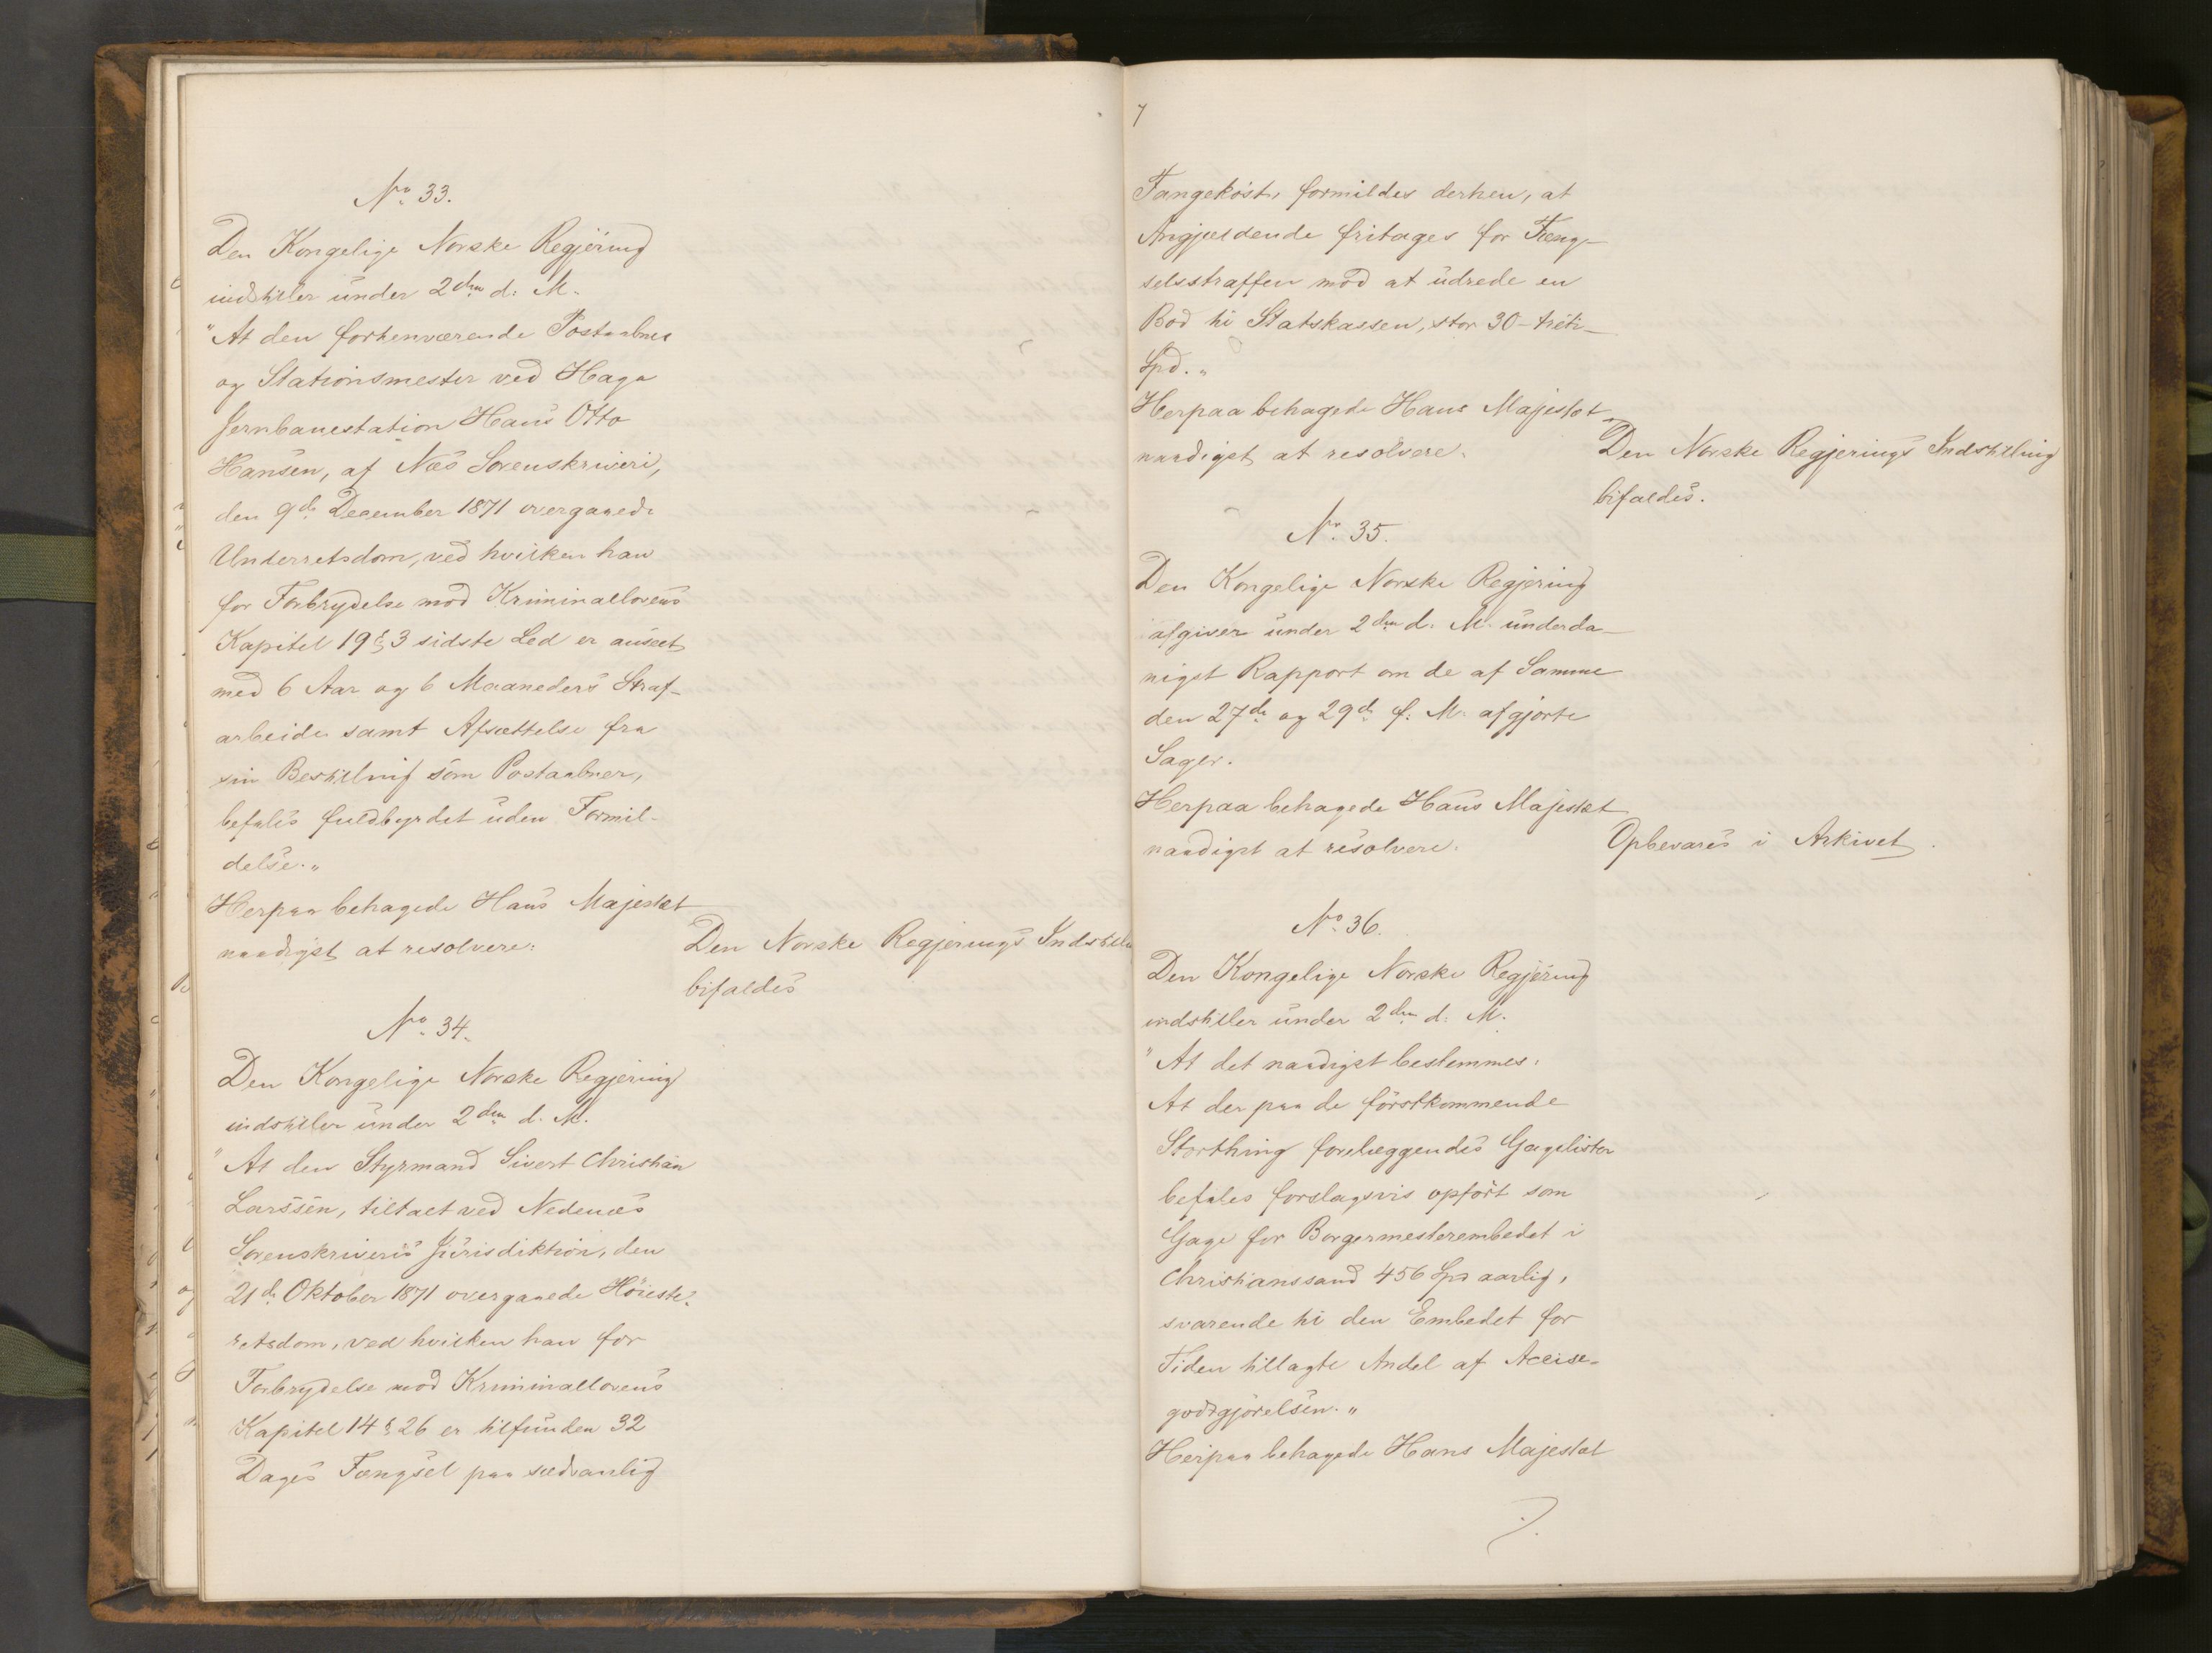 No 33.
Den Kongelige Norske Regjering
indstiller under 2den d. M.
"At den forhenværende Postaabner
og Stationsmester ved Haga
Jernbanestation Hans Otto
Hansen, af Næs Sorenskriveri,
den 9de December 1871 overgaaede
Underretsdom, ved hvilken han
for Forbrydelse mod Kriminallovens
Kapitel 19 § 3 sidste Led er anseet
med 6 Aar og 6 Maaneders Straf-
arbeide samt Afsættelse fra
sin Bestilling som Postaabner,
befales fuldbyrdet uden Formil-
delse."
Herpaa behagede Hans Majestæt
naadigst at resolvere:
Den Norske Regjerings Indstilling
bifaldes
No 34.
Den Kongelige Norske Regjering
indstiller under 2den d. M.
"At den Styrmand Sivert Christian
Larssen, tiltalt ved Nedenæs
Sorenskriveris Jurisdiktion, den
21de Oktober 1871 overgaaede Höieste-
retsdom, ved hvilken han for
Forbrydelse mod Kriminallovens
Kapitel 14 § 26 er tilfunden 32
Dages Fængsel paa sædvanlig
7
Fangekost, formildes derhen, at
Angjældende fritages for Fæng-
selsstraffen mod at udrede en
Bod til Statskassen, stor 30 - treti -
Spd."
Herpaa behagede Hans Majestæt
naadigst at resolvere:
Den Norske Regjerings Indstilling
bifaldes.
No 35.
Den Kongelige Norske Regjering
afgiver under 2den d. M. underda-
nigst Rapport om de af Samme
den 27de og 29de f. M. afgjorte
Sager.
Herpaa behagede Hans Majestæt
naadigst at resolvere:
Opbevares i Arkivet.
No 36.
Den Kongelige Norske Regjering
indstiller under 2den d. M.
"At det naadigst bestemmes:
At der paa de förstkommende
Storthing forelæggendes Gagelister
befales forslagsvis opfört som
Gage for Borgermesterembedet i
Christianssand 456 Spd aarlig,
svarende til den Embedet for
Tiden tillagte Andel af Accise-
godtgjörelsen."
Herpaa behagede Hans Majestæt